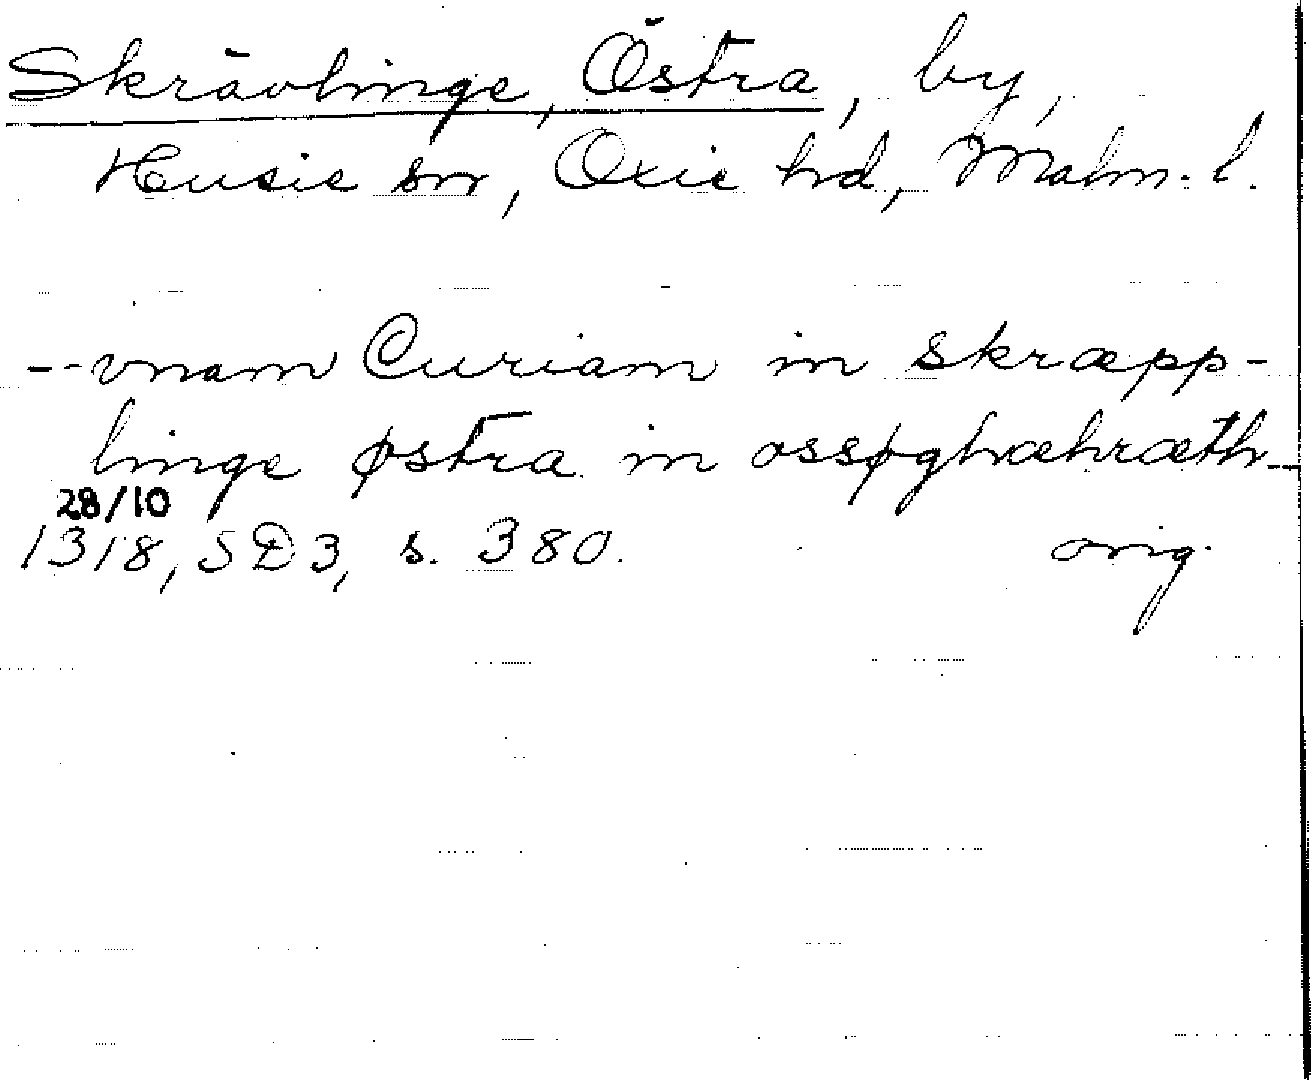 Skrävlinge, Östra, by,
Husie sn, Oxie hd, Malm. l.
-- vnam Curiam in skræpp-
linge østra in ossøghæhræth --
28/10
1318, SD3, s. 380. orig.